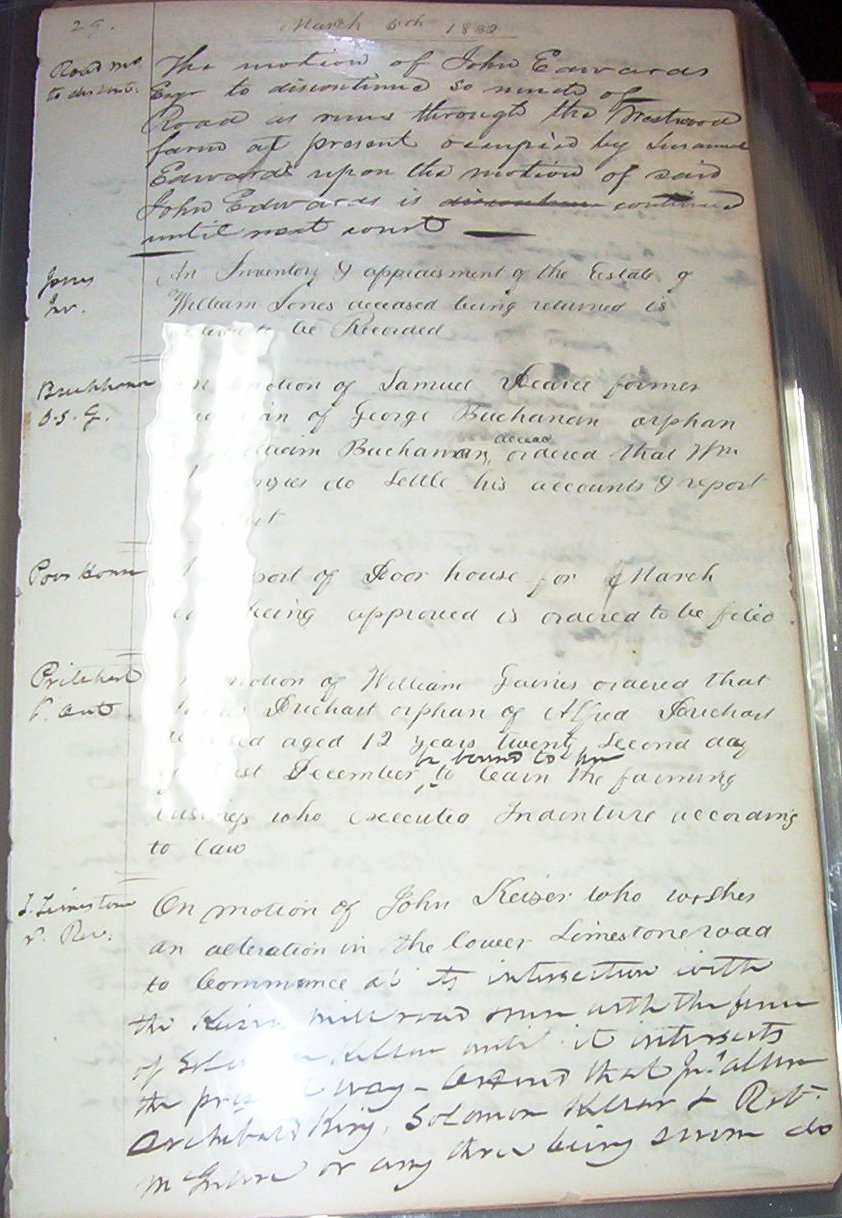 29.
March 5th 18
Road mo
to discont.
The motion of John Edwards
Esqr to discontinue so much of
Road as runs through the Westwood
farm at present occupied by Susannah
Edwards upon the motion of said
John Edwards is discontinu continued
until next court
Jones
Inv.
An Inventory & appraisment of the Estate of
William Jones deceased being returned is
to be Recorded
Buchhanan
O.S.G.
motion of Samuel Pearce former
of George Buchanan orphan
Buchanan, deceasd ordered that Wm
do Settle his accounts & report
Poor House
of Poor house for March
being approved is ordered to be filed
Pritchart
motion of William Garries ordered that
Prichart orphan of Alfred Prichart
aged 12 years twenty second day
December be bound to him to learn the farming
business who executed Indenture according
to law
L. Limestone
r. Rev.
On motion of John Keiser who wishes
an alteration in the lower Limestone road
to Commence at its intersection with
the mill road with the
of until it intersects
the way - Ordered that Jno. allen
Archibald King, Solomon Kellar & Rob.
or any three being sworn do